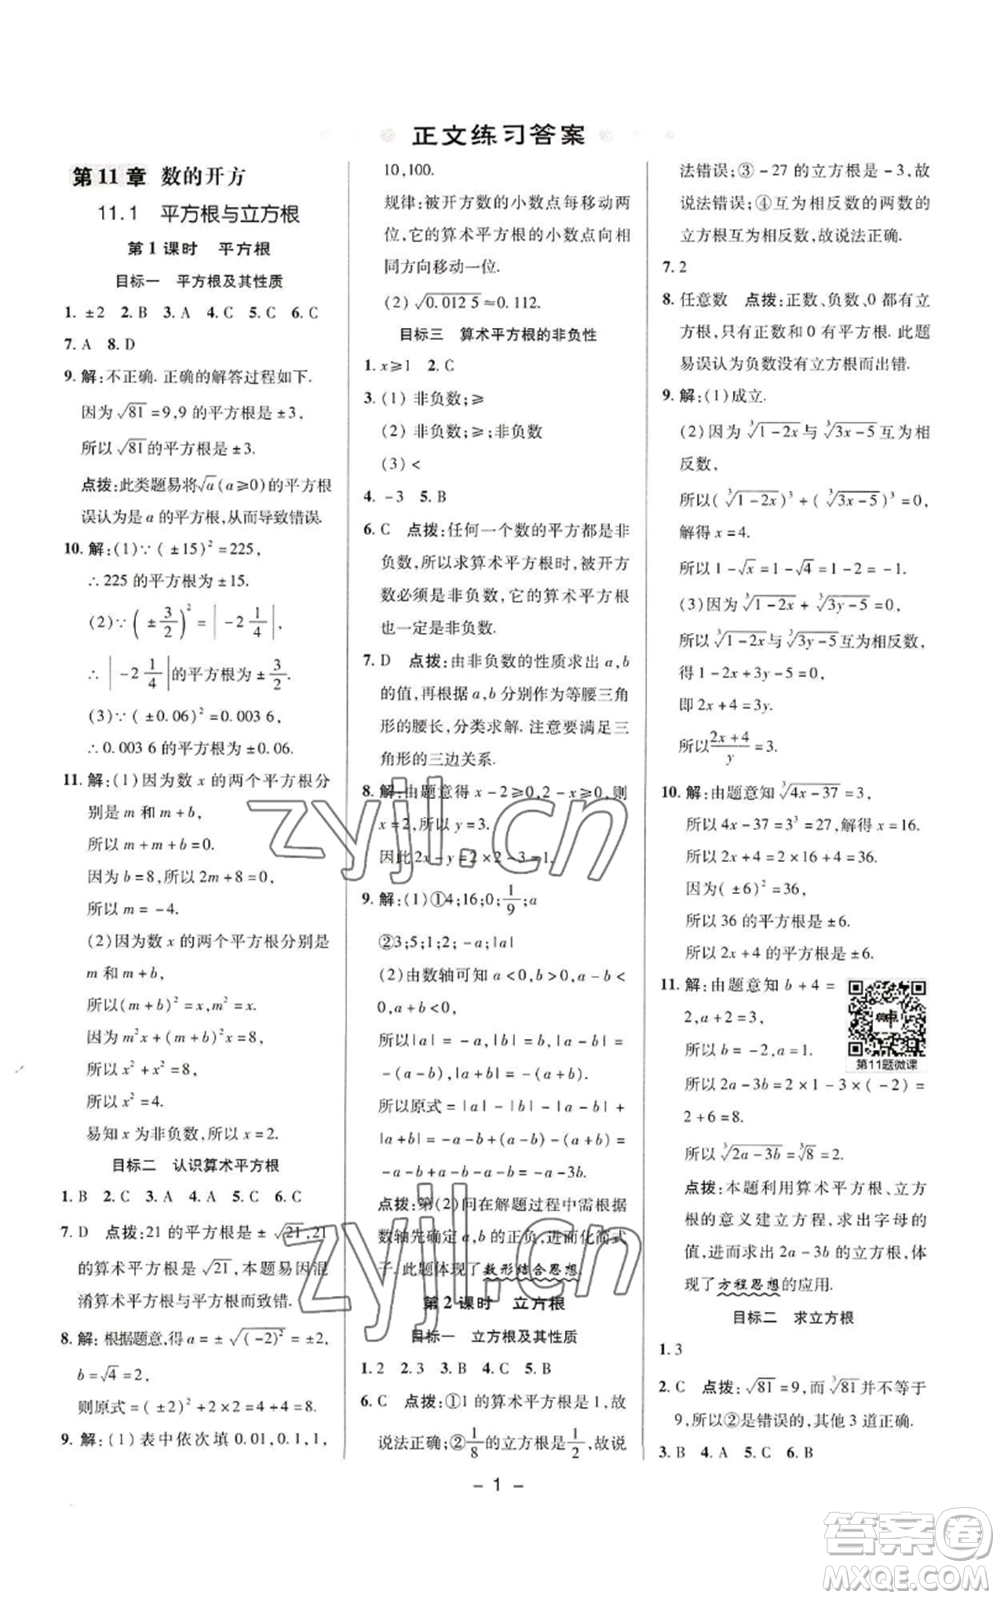 正文练习答案
第11章 数的开方
11.1 平方根与立方根
第1课时 平方根
目标一 平方根及其性质
1. ±2 2. B 3. A 4. C 5. C 6. C
7. A 8. D
9. 解:不正确. 正确的解答过程如下.
因为√81=9,9 的平方根是±3,
所以√81的平方根是±3.
点拨:此类题易将√a(a≥0)的平方根
误认为是 a 的平方根,从而导致错误.
10. 解:(1)∵(±15)²=225,
∴225 的平方根为±15.
(2)∵(±3/2)²=|-2 1/4|,
∴|-2 1/4|的平方根为±3/2.
(3)∵(±0.06)²=0.003 6,
∴0.003 6 的平方根为±0.06.
11. 解:(1)因为数 x 的两个平方根分
别是 m 和 m+b,
所以 m+m+b=0.
因为 b=8,所以 2m+8=0.
所以 m=-4.
(2)因为数 x 的两个平方根分别是
m 和 m+b,
所以(m+b)²=x,m²=x.
因为 m²x+(m+b)²x=8,
所以 x²+x²=8.
所以 x²=4.
易知 x 为非负数,所以 x=2.
目标二 认识算术平方根
1. B 2. C 3. C 4. A 5. C 6. B
7. D 点拨:21 的平方根是±√21,21
的算术平方根是√21,本题易因混
淆算术平方根与平方根而致错.
8. 解:根据题意,得 a=±√(-2)²=±2,
b=√4=2.
则原式=(±2)²+2²+2=10.
9. 解:(1)表中依次填 0.01,0.1,1,
10,100.
规律:被开方数的小数点每移动两
位,它的算术平方根的小数点向相
同方向移动一位.
(2)√0.012 5≈0.112.
目标三 算术平方根的非负性
1. x≥1 2. C
3. (1)非负数;≥
(2)非负数;≥;非负数
(3)<
4. -3 5. B
6. C 点拨:任何一个数的平方都是非
负数,所以求算术平方根时,被开方
数必须是非负数,它的算术平方根
也一定是非负数.
7. D 点拨:由非负数的性质求出 a,b
的值,再根据 a,b 分别作为等腰三角
形的腰长,分类求解. 注意要满足三
角形的三边关系.
8. 解:由题意得 x-2≥0,2-x≥0,则
x=2,所以 y=3.
因此 2x-y=2×2-3=1.
9. 解:(1)①4;16;0;1/9;a
②3;5;1;2;-a;|a|
(2)由数轴可知 a<0,b>0,a-b<
0,a+b<0,
所以|a|=-a,|b|=b,|a-b|=
-(a-b),|a+b|=-(a+b).
所以原式=|a|-|b|-|a-b|+
|a+b|=
-a-b+(a-b)-(a+b)=
-a-b+a-b-a-b=-a-3b.
点拨:第(2)问在解题过程中需根据
数轴先确定 a,b 的正负,进而化简式
子. 此题体现了数形结合思想.
第2课时 立方根
目标一 立方根及其性质
1. 2 2. 3 3. B 4. C 5. B
6. C 点拨:①1 的算术平方根是 1,故
说法正确;②1/8的立方根是1/2,故说
法错误;③-27 的立方根是-3,故
说法错误;④互为相反数的两数的
立方根互为相反数,故说法正确.
7. 2
8. 任意数 点拨:正数、负数、0 都有立
方根,只有正数和 0 有平方根. 此题
易误认为负数没有立方根而出错.
9. 解:(1)成立.
(2)因为∛(1-2x)与∛(3x-5)互为相
反数,
所以(∛(1-2x))³+(∛(3x-5))³=0,
解得 x=4.
所以 1-√x=1-√4=-1.
(3)因为∛(1-2x)+∛(3y-5)=0,
所以∛(1-2x)与∛(3y-5)互为相反数,
得 1-2x+3y-5=0,
即 2x+4=3y.
所以(2x+4)/y=3.
10. 解:由题意知∛(4x-37)=3,
所以 4x-37=3³=27,解得 x=16.
所以 2x+4=2×16+4=36.
因为(±6)²=36,
所以 36 的平方根是±6.
所以 2x+4 的平方根是±6.
11. 解:由题意知 b+4=
2,a+2=3,
所以 b=-2,a=1.
所以 2a-3b=2×1-3×(-2)=
2+6=8.
所以∛(2a-3b)=∛8=2.
点拨:本题利用算术平方根、立方
根的意义建立方程,求出字母的
值,进而求出 2a-3b 的立方根,体
现了方程思想的应用.
第11题微课
目标二 求立方根
1. 3
2. C 点拨:√81=9,而∛81并不等于
9,所以②是错误的,其他 3 道正确.
3. B 4. A 5. C 6. B
- 1 -
zyjl.cn
zyjl.cn
答案卷
MXQE.COM